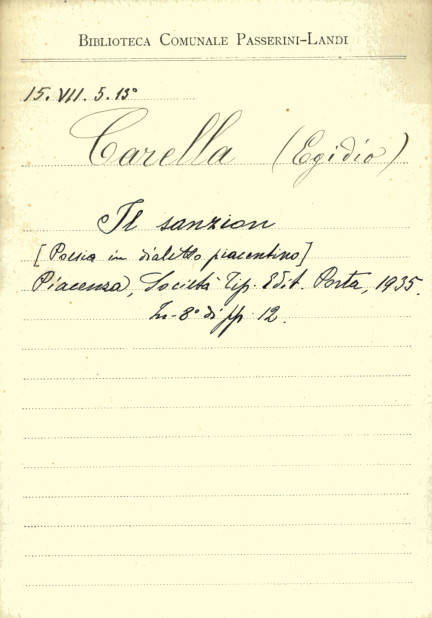 BIBLIOTECA COMUNALE PASSERINI-LANDI
15. VII. 5. 13°
Carella (Egidio)
Il sanzion
[Poesia in dialetto piacentino]
Piacenza, Società Tip. Edit. Porta, 1935.
In-8° di pp 12.